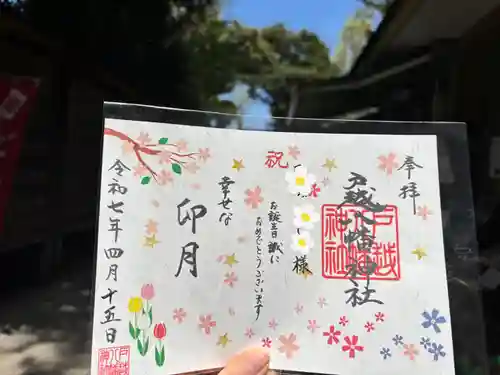 奉拝
戸越八幡神社
戸越
八幡
神社
祝
様
お誕生日 誠に
おめでとうございます
幸せな
卯月
令和七年四月十五日